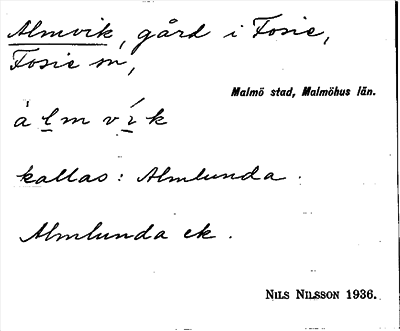 Almvik, gård i Fosie,
Fosie sn,
Malmö stad, Malmöhus län.
àl̲m ví̲k
kallas: Almlunda.
Almlunda ek.
NILS NILSSON 1936.